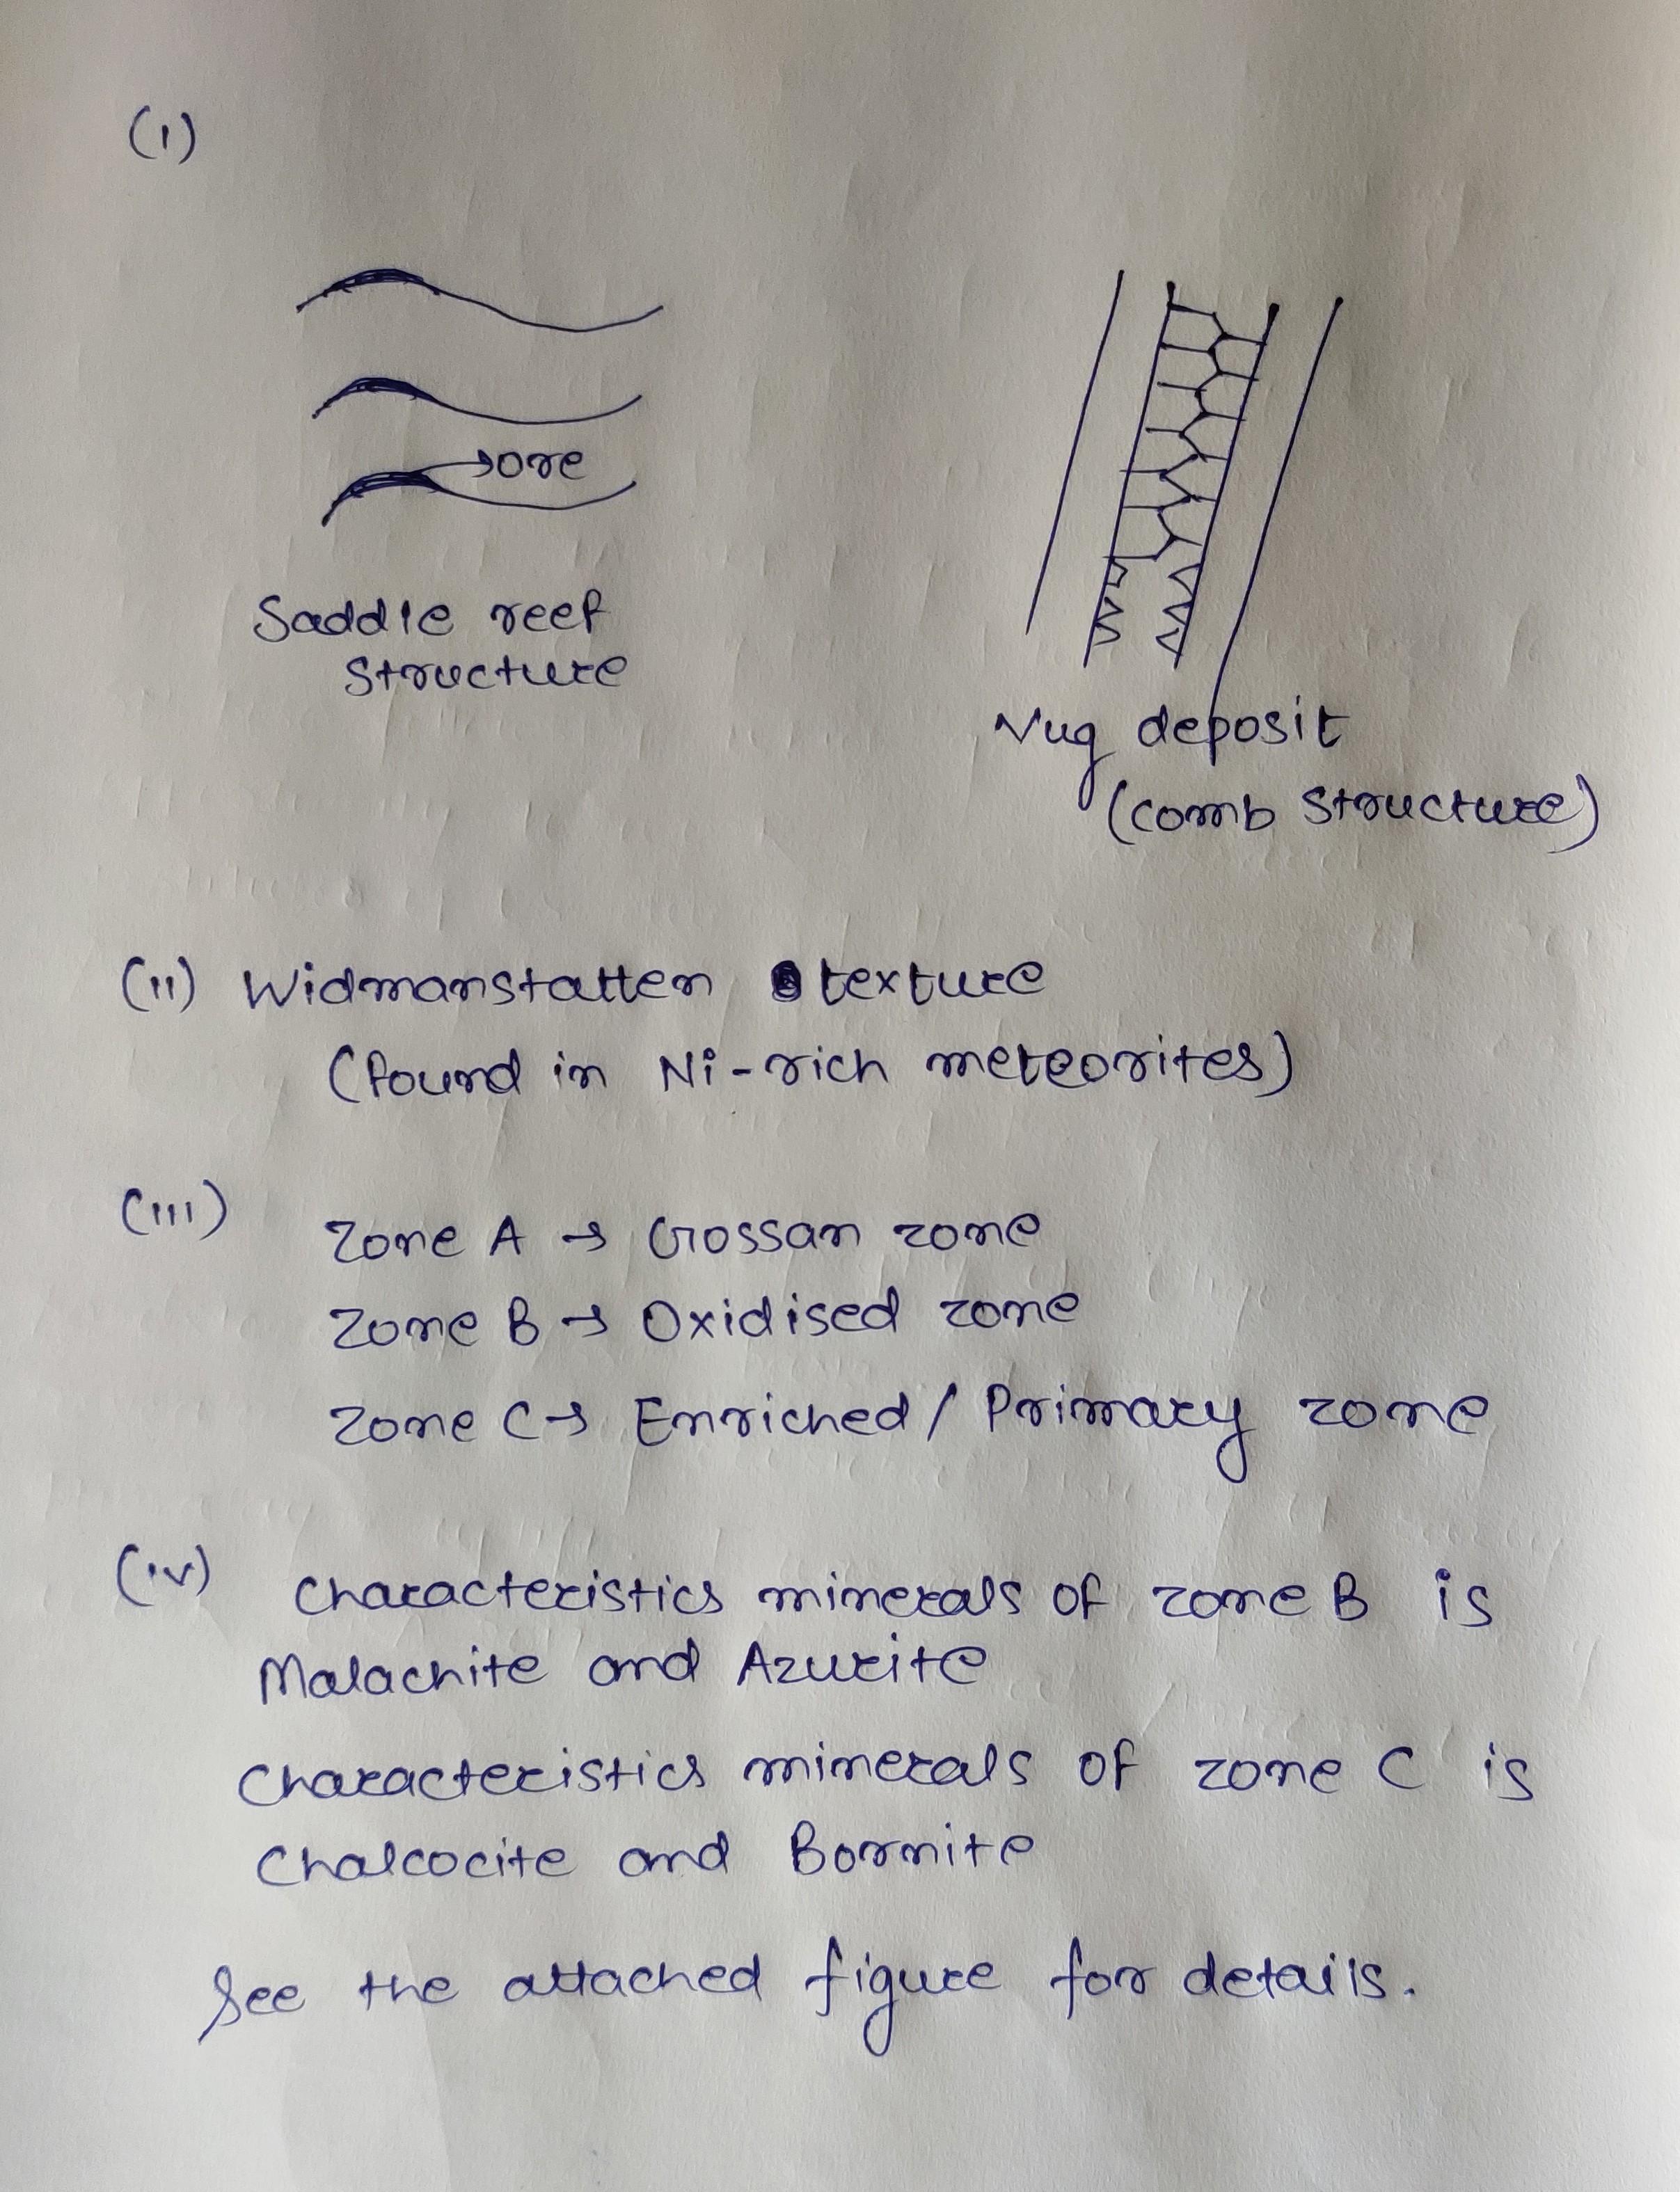 (i)
→ore
Saddle reef
structure
Vug deposit
(comb structure)
(ii) Widmanstatten texture
(found in Ni-rich meteorites)
(iii)
Zone A → Gossan zone
Zone B → Oxidised zone
Zone C → Enriched / Primary zone
(iv) Characteristics minerals of zone B is
Malachite and Azurite
Characteristics minerals of zone C is
Chalcocite and Bornite
See the attached figure for details.